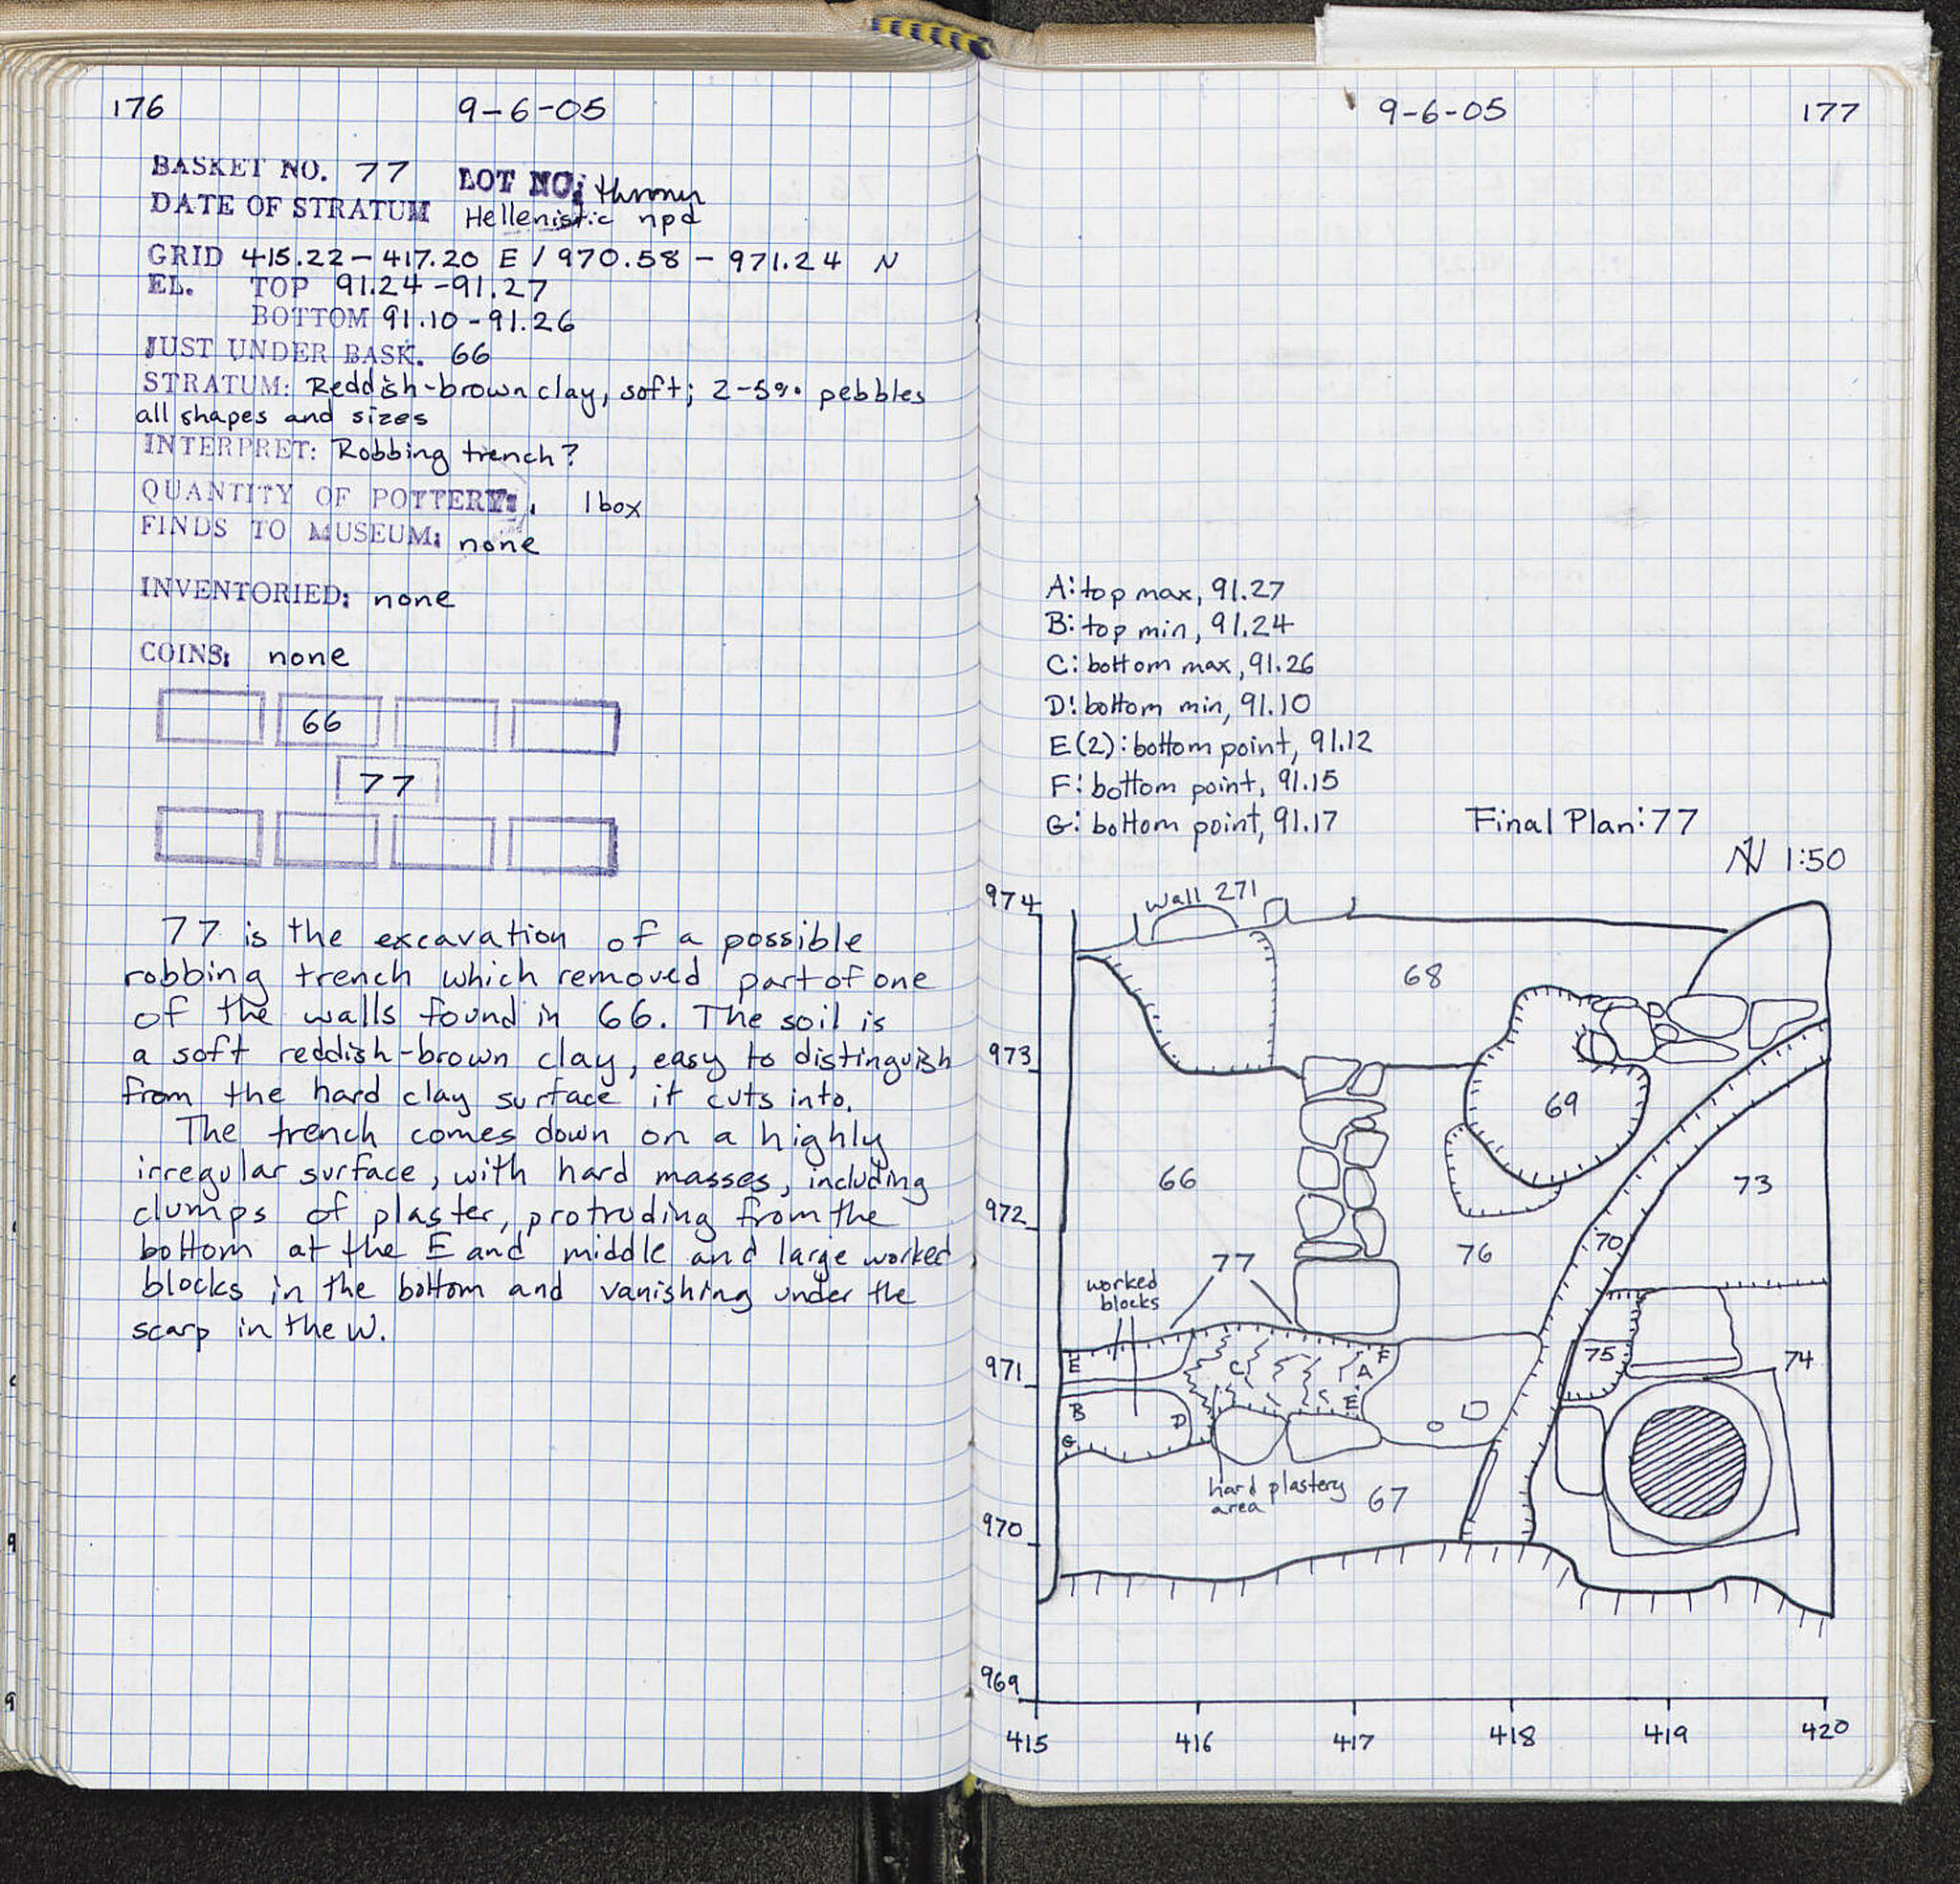 176
9-6-05
BASKET NO. 77 LOT NO: thrown
DATE OF STRATUM Hellenistic npd
GRID 415.22-417.20 E / 970.58 - 971.24 N
EL. TOP 91.24-91.27
BOTTOM 91.10-91.26
JUST UNDER BASK. 66
STRATUM: Reddish-brown clay, soft; 2-5% pebbles
all shapes and sizes
INTERPRET: Robbing trench?
QUANTITY OF POTTERY: 1 box
FINDS TO MUSEUM: none
INVENTORIED: none
COINS: none
66
77
77 is the excavation of a possible
robbing trench which removed part of one
of the walls found in 66. The soil is
a soft reddish-brown clay, easy to distinguish
from the hard clay surface it cuts into.
The trench comes down on a highly
irregular surface, with hard masses, including
clumps of plaster, protruding from the
bottom at the E and middle and large worked
blocks in the bottom and vanishing under the
scarp in the W.
9-6-05
177
A: top max, 91.27
B: top min, 91.24
C: bottom max, 91.26
D: bottom min, 91.10
E(2): bottom point, 91.12
F: bottom point, 91.15
G: bottom point, 91.17
Final Plan: 77
N 1:50
974
wall 271
68
973
69
66
73
972
70
76
77
worked
blocks
971
E
C
A
F
75
74
B
D
E
G
hard plastery
area
67
970
969
415
416
417
418
419
420